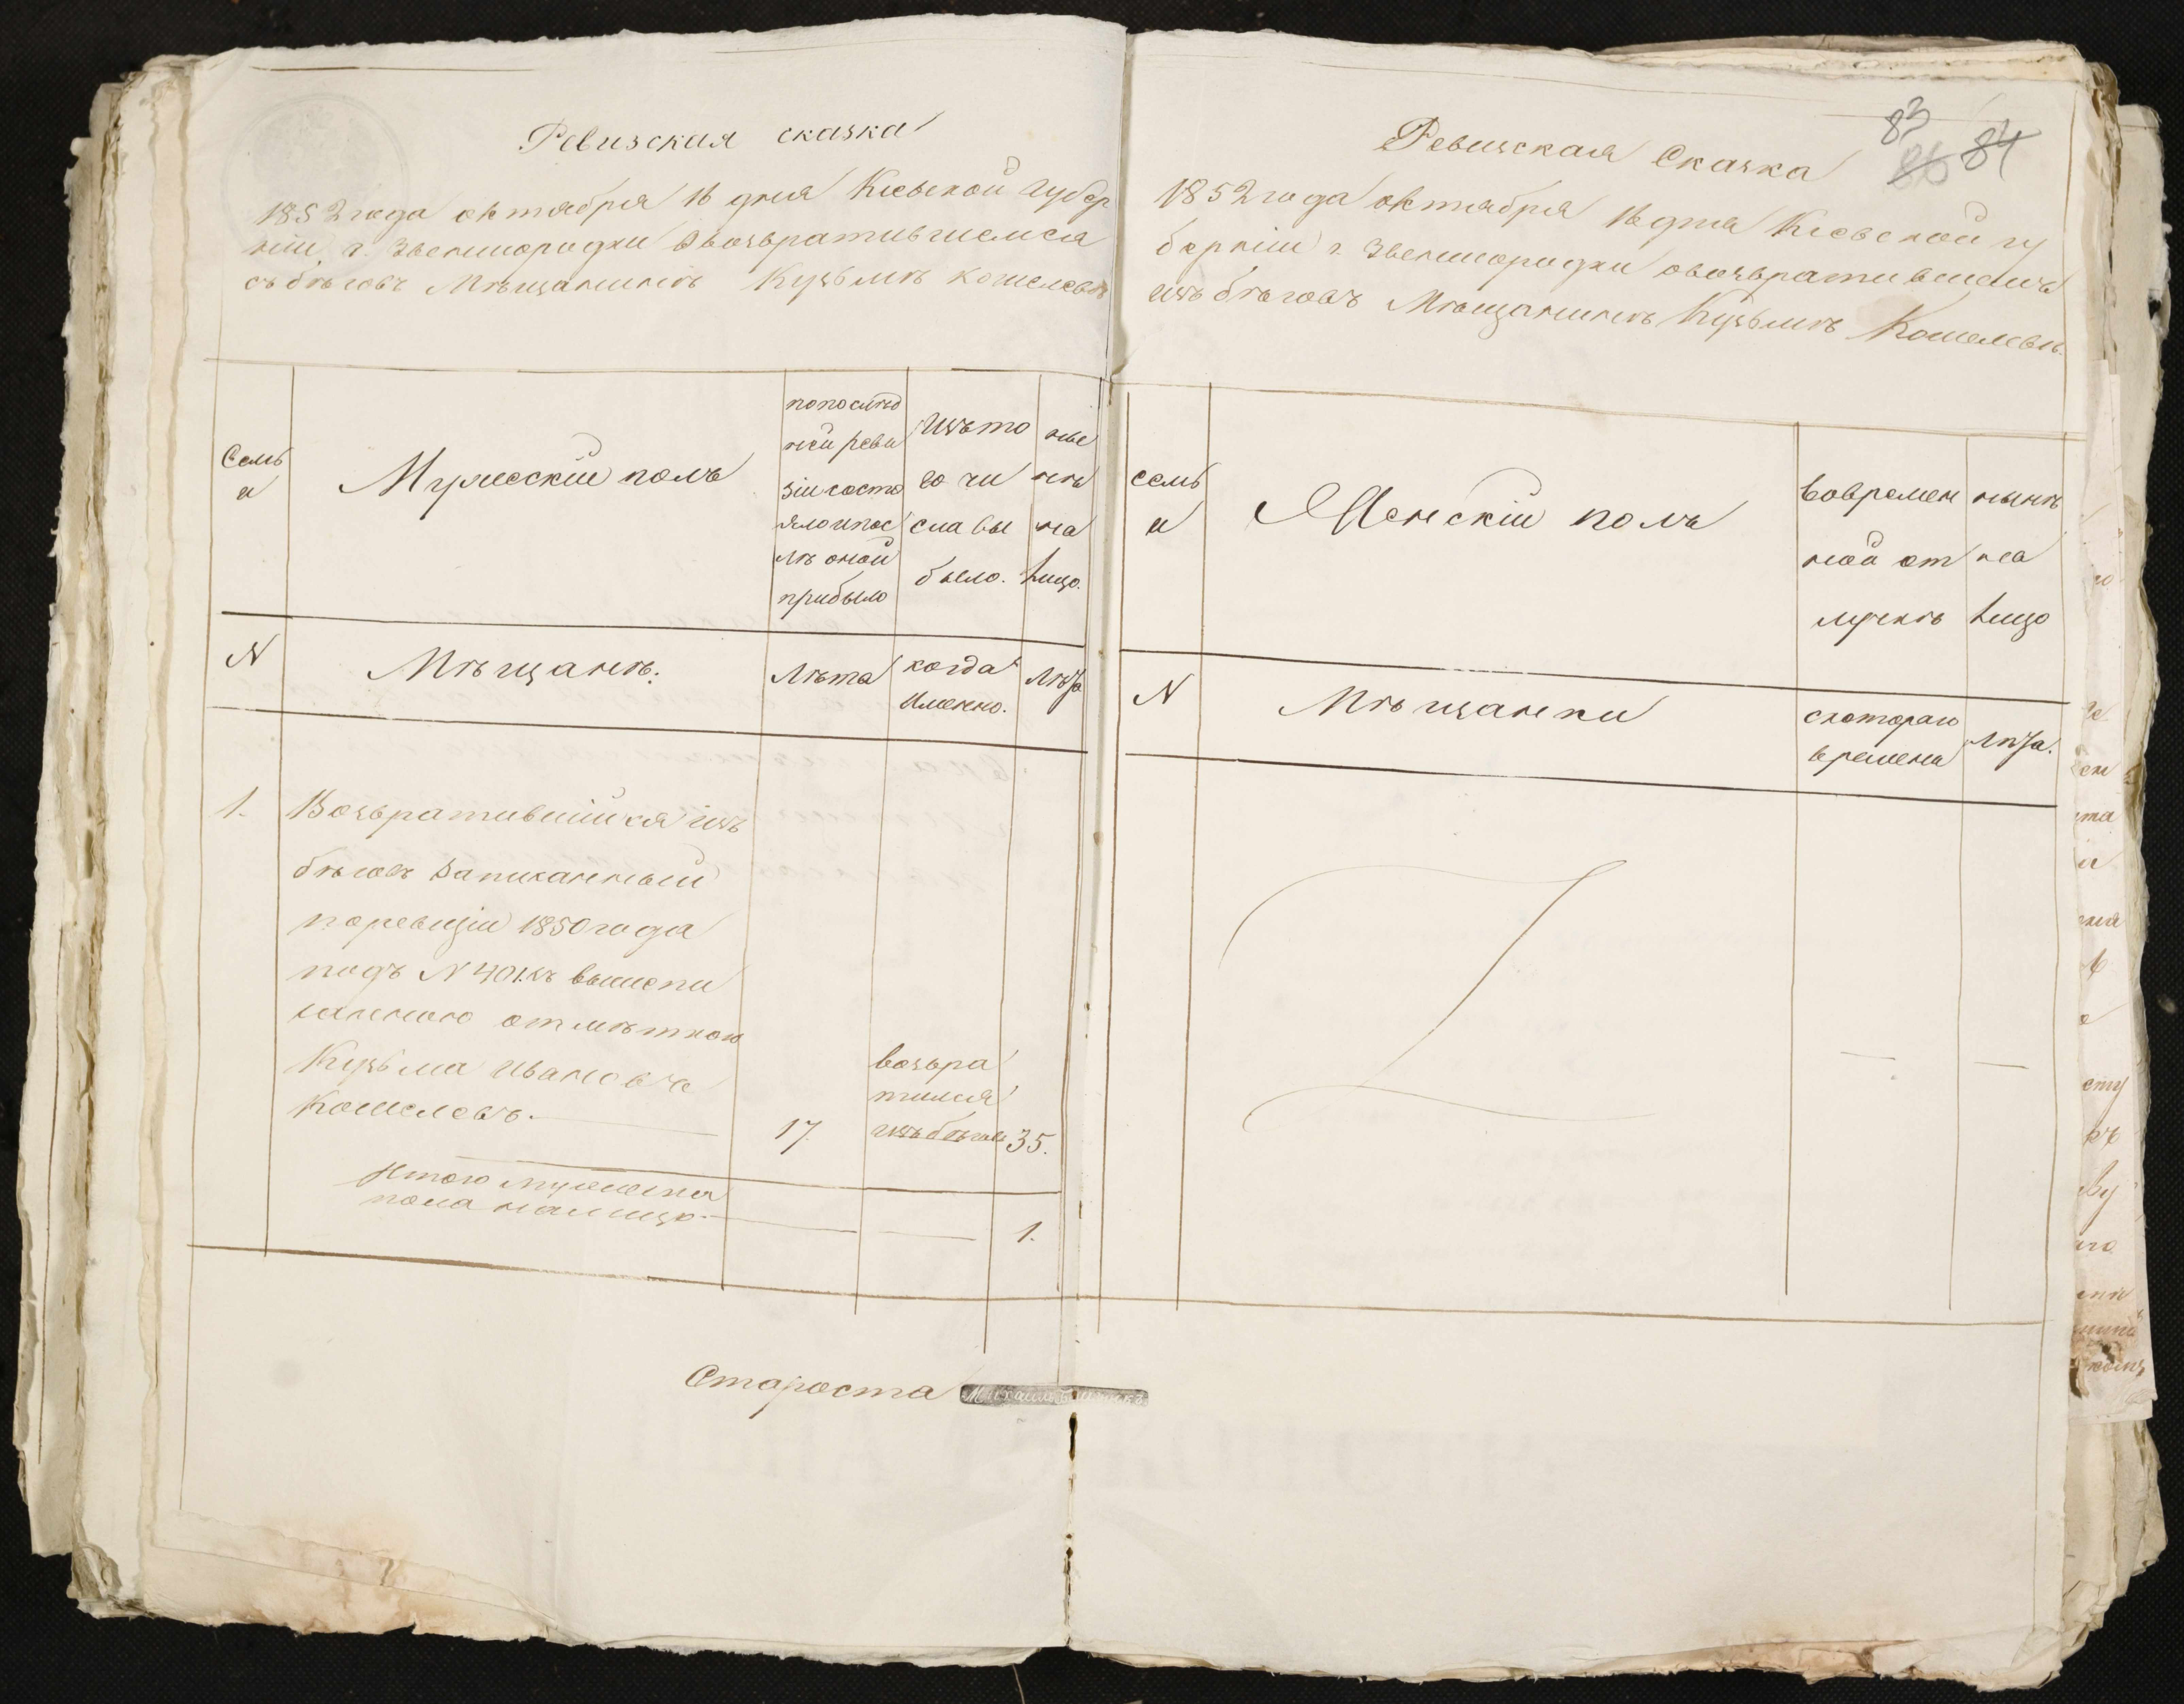 Ревизская сказка
1852 года октября 16 дня Кіевской Губер
ніи, г. Звенигородки о возвратившемся
съ бѣговъ Мѣщанинѣ Кузьмѣ Кошелевѣ
Семь
и
Мужескій полъ
попослѣд
ней реви
зіи состо
яло и пос
лѣ оной
прибыло
Изъ то
го чи
сла вы
было.
ны
нѣ
на
лицо.
N
Мѣщанѣ.
Лѣта
когда
именно.
Лѣта
1.
Возвратившійся изъ
бѣговъ записанный
по ревизіи 1850 года
подъ N 401. съ
отмѣткою
Кузьма Ивановъ
Кошелевъ.
17.
возвра
тился
изъ бѣговъ
35.
Итого мужеска
пола налицо.
1.
Староста
83
84
Ревизская Сказка
1852 года октября 16 дня Кіевской гу
берніи г. Звенигородки о возвратившемъ
изъ бѣговъ Мѣщанинѣ Кузьмѣ Кошелевѣ.
семь
и
Женскій полъ
вовремен
ной от
лучкѣ
нынѣ
на
лицо
N
Мѣщанки
скотораго
времени
Лѣта.